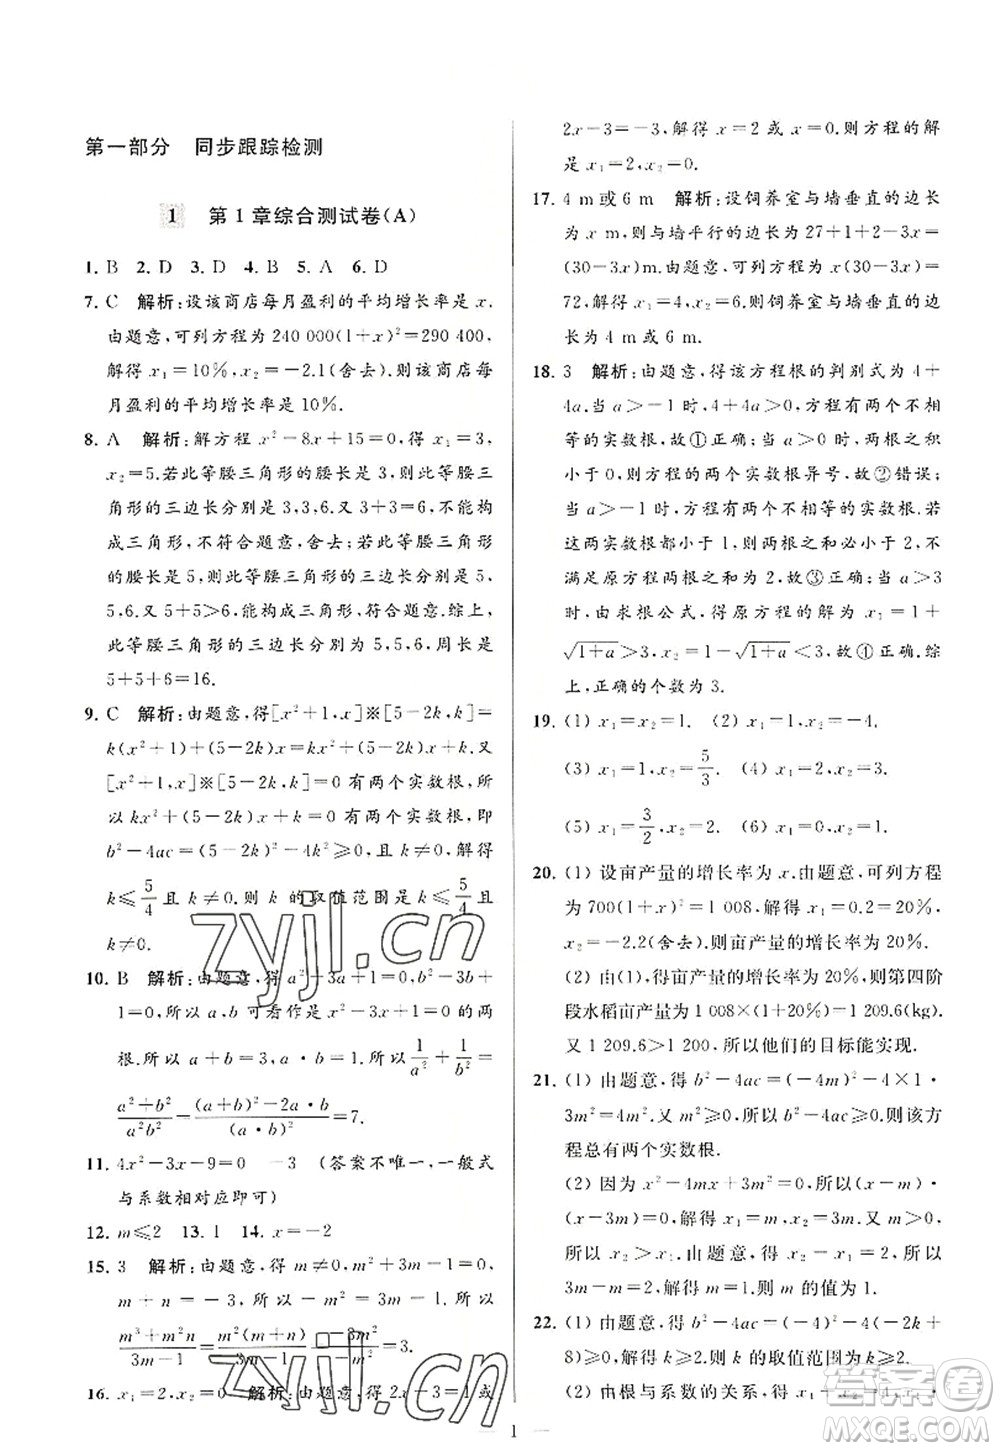 第一部分 同步跟踪检测
1 第1章综合测试卷(A)
1. B 2. D 3. D 4. B 5. A 6. D
7. C 解析:设该商店每月盈利的平均增长率是 x.
由题意,可列方程为 240 000(1+x)²=290 400,
解得 x₁=10%,x₂=-2.1(舍去).则该商店每
月盈利的平均增长率是 10%.
8. A 解析:解方程 x²-8x+15=0,得 x₁=3,
x₂=5.若此等腰三角形的腰长是 3,则此等腰三
角形的三边长分别是 3,3,6.又 3+3=6,不能构
成三角形,不符合题意,舍去;若此等腰三角形
的腰长是 5,则此等腰三角形的三边长分别是 5,
5,6.又 5+5>6,能构成三角形,符合题意.综上,
此等腰三角形的三边长分别为 5,5,6.周长为
5+5+6=16.
9. C 解析:由题意,得[x²+1,x]※[5-2k,k]=
k(x²+1)+(5-2k)x=kx²+(5-2k)x+k.又
[x²+1,x]※[5-2k,k]=0 有两个实数根,所
以 kx²+(5-2k)x+k=0 有两个实数根,即
b²-4ac=(5-2k)²-4k²≥0,且 k≠0,解得
k≤5/4且 k≠0.则 k 的取值范围是 k≤5/4且
k≠0.
10. B 解析:由题意,得 a²-3a+1=0,b²-3b+
1=0,所以 a,b 可看作是 x²-3x+1=0 的两
根.所以 a+b=3,a·b=1.所以 1/a²+1/b²=
(a²+b²)/(a²b²)=((a+b)²-2a·b)/(a·b)²=7.
11. 4x²-3x-9=0 -3 (答案不唯一,一般式
与系数相对应即可)
12. m≤2 13. 1 14. x=-2
15. 3 解析:由题意,得 m≠n,m²+3m-1=0,
m+n=-3,所以 1-m²=3m,所以
(m³+m²n)/(3m-1)=m²(m+n)/(3m-1)=-3m²/-m²=3.
16. x₁=2,x₂=0 解析:由题意,得 2x-3=1 或
2x-3=-3,解得 x=2 或 x=0.则方程的解
是 x₁=2,x₂=0.
17. 4 m 或 6 m 解析:设饲养室与墙垂直的边长
为 x m,则与墙平行的边长为 27+1+2-3x=
(30-3x)m.由题意,可列方程为 x(30-3x)=
72,解得 x₁=4,x₂=6.则饲养室与墙垂直的边长
为 4 m 或 6 m.
18. 3 解析:由题意,得该方程根的判别式为 4+
4a.当 a>-1 时,4+4a>0,则方程有两个不相
等的实数根,故①正确;当 a>0 时,两根之积
小于 0,则方程的两个实数根异号,故②错误;
当 a>-1 时,方程有两个不相等的实数根.若
这两实数根都小于 1,则两根之和必小于 2,不
满足原方程两根之和为 2,故③正确;当 a>3
时,由求根公式,得原方程的解为 x₁=1+
√(1+a)>3,x₂=1-√(1+a)<3,故④正确.综
上,正确的个数为 3.
19. (1) x₁=x₂=1. (2) x₁=1,x₂=-4.
(3) x₁=x₂=5/3. (4) x₁=2,x₂=3.
(5) x₁=3/2,x₂=2. (6) x₁=0,x₂=1.
20. (1) 设亩产量的增长率为 x.由题意,可列方程
为 700(1+x)²=1 008.解得 x₁=0.2=20%,
x₂=-2.2(舍去).则亩产量的增长率为 20%.
(2) 由(1),得亩产量的增长率为 20%,则第四阶
段水稻亩产量为 1 008×(1+20%)=1 209.6(kg).
又 1 209.6>1 200,所以他们的目标能实现.
21. (1) 由题意,得 b²-4ac=(-4m)²-4×1·
3m²=4m².又 m²≥0,所以 b²-4ac≥0,则该方
程总有两个实数根.
(2) 因为 x²-4mx+3m²=0,所以(x-m)·
(x-3m)=0,解得 x₁=m,x₂=3m.又 m>0,
所以 x₂>x₁.由题意,得 x₂-x₁=2,所以
3m-m=2,解得 m=1.则 m 的值为 1.
22. (1) 由题意,得 b²-4ac=(-4)²-4(-2k+
8)≥0,解得 k≥2.则 k 的取值范围是 k≥2.
(2) 由根与系数的关系,得
1
zyjl.cn
zyjl.cn
答案圈
MXQE.COM